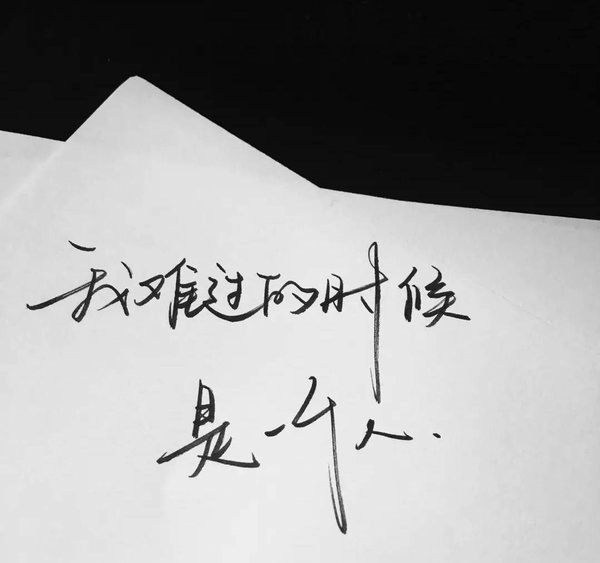 我难过的时候
是一个人.